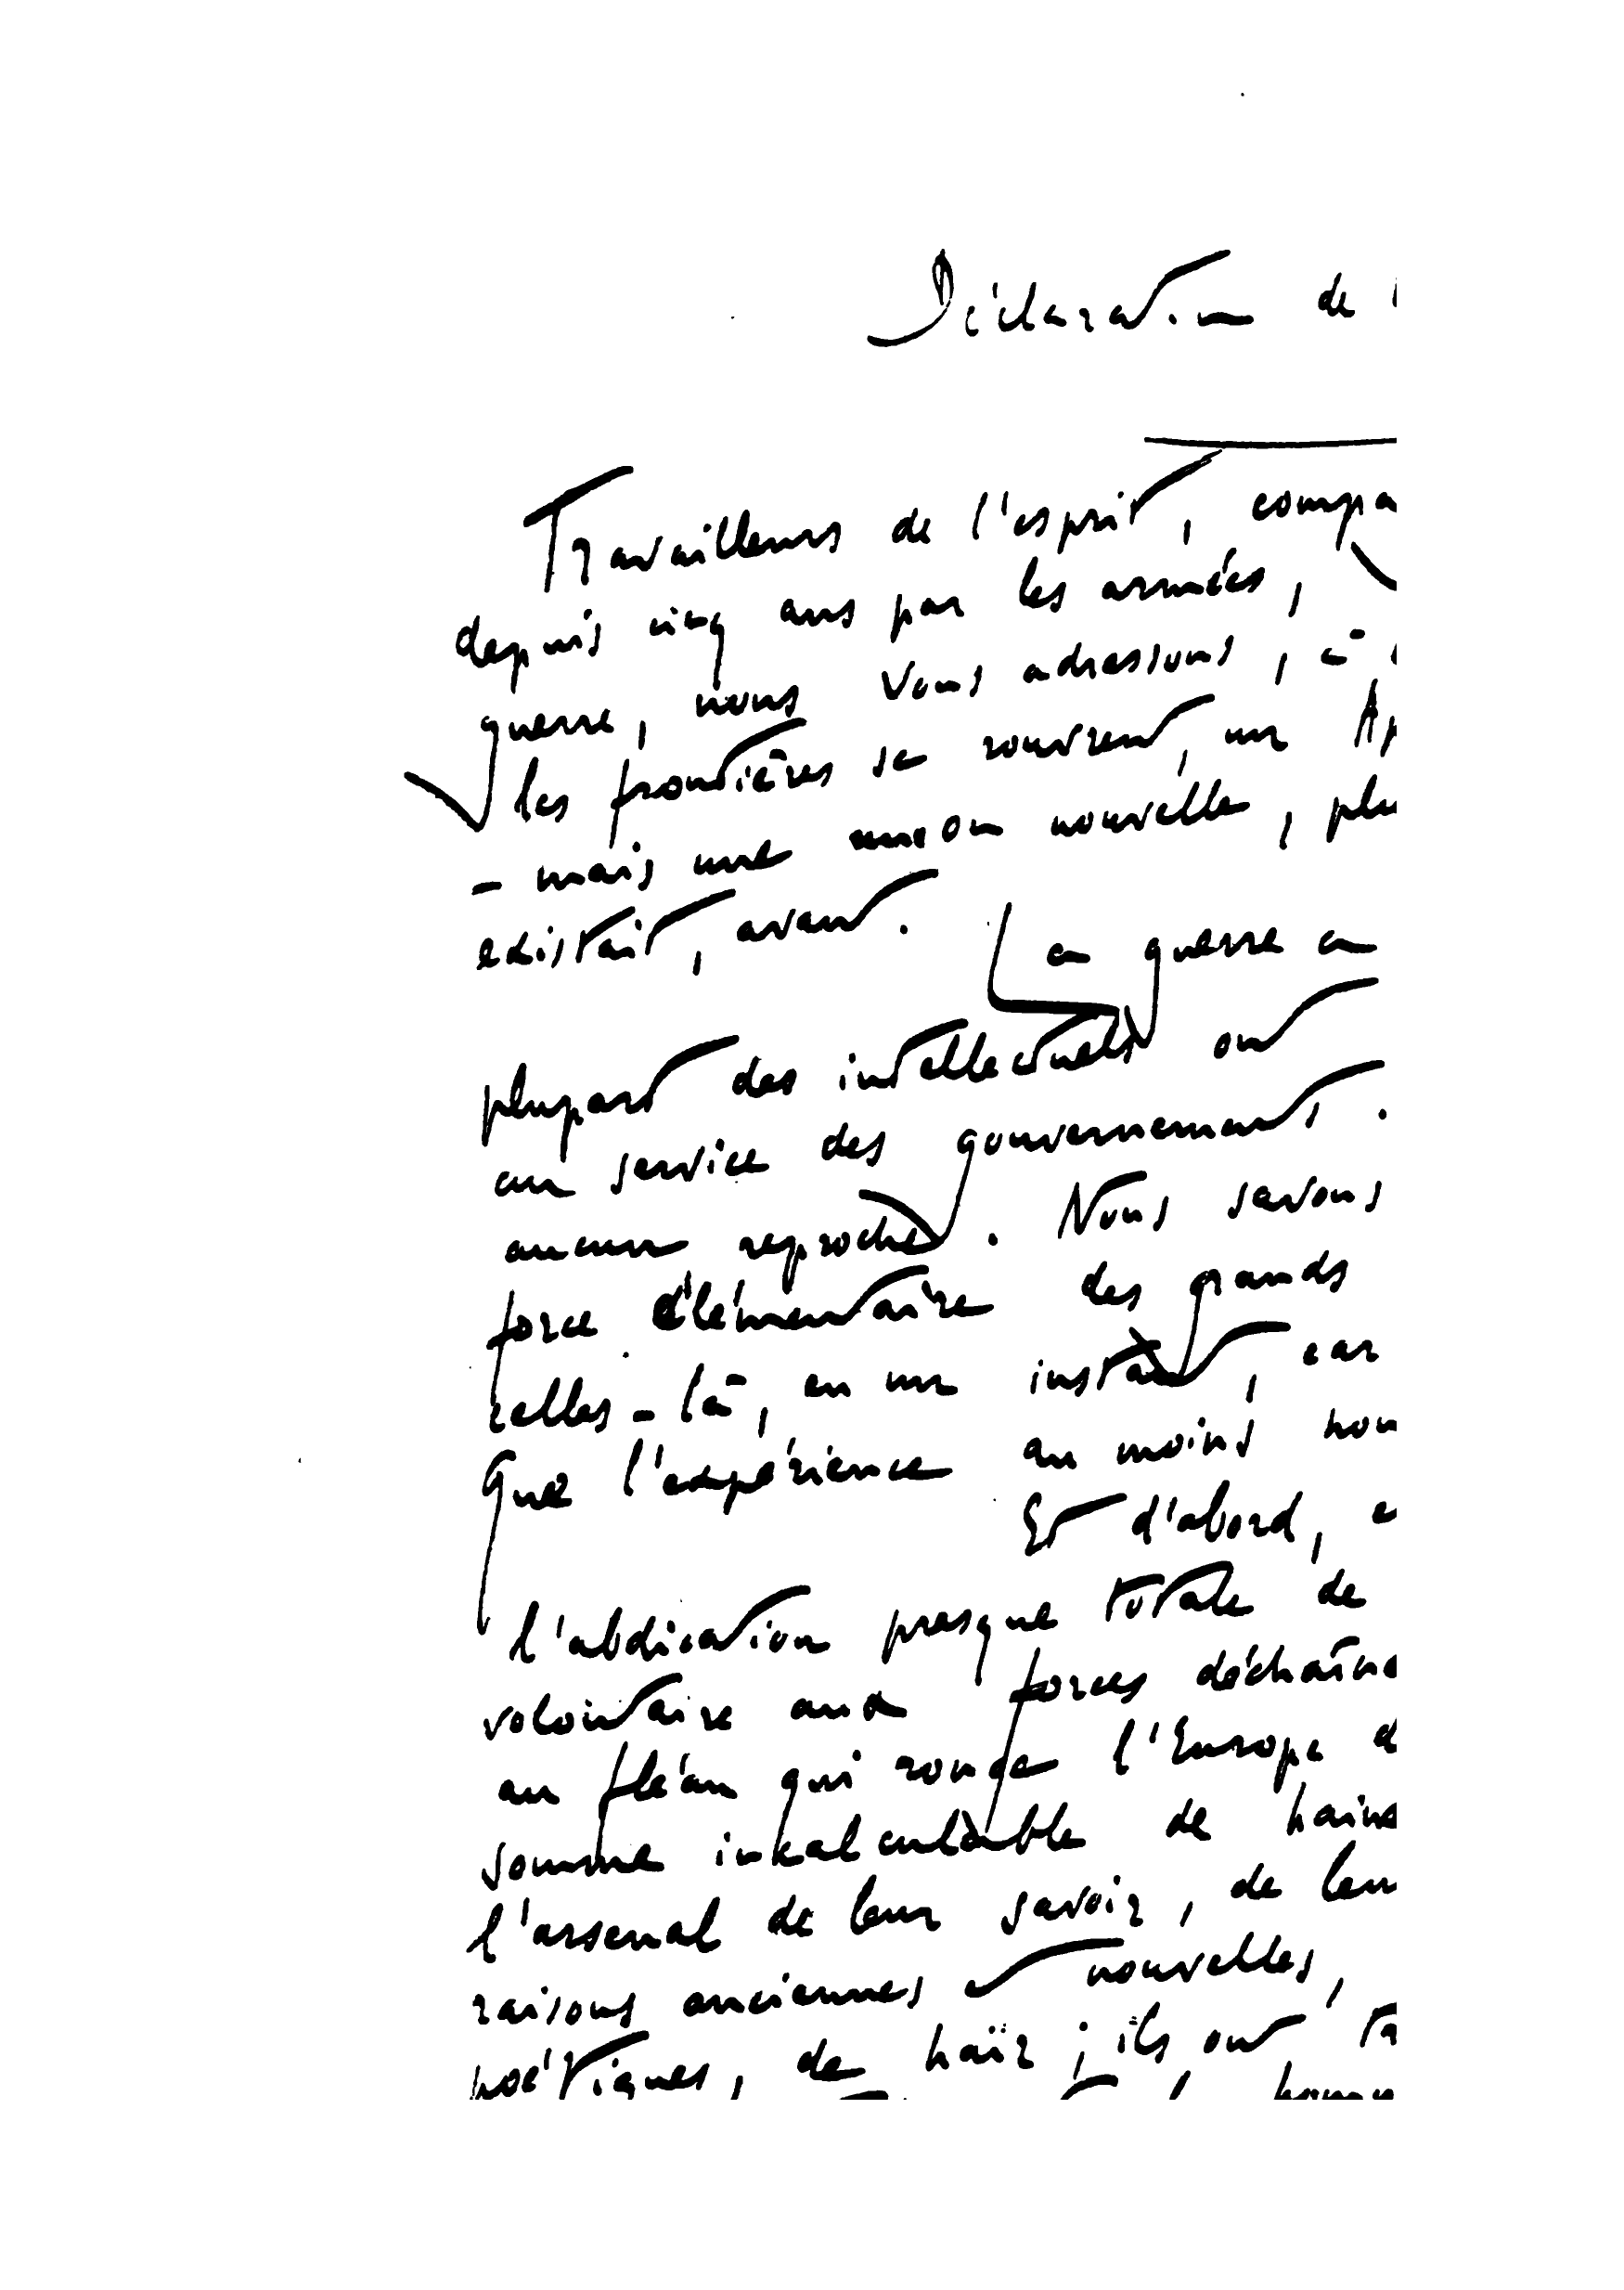 Déclaration de l
Travailleurs de l'esprit, compa
depuis cinq ans par les armées,
guerre, nous vous adressons, à
les frontières se rouvrent, un Ap
- mais une union nouvelle, plu
existait, avant.
La guerre a
plupart des intellectuels ont
au service des gouvernements.
aucun reproche. Nous savons
force élémentaire des grands
celles-là, en un instant, car
Que l'expérience au moins nou
Et d'abord,
l'abdication presque totale de
volontaire aux forces déchaîné
au fléau qui ronge l'Europe d
somme incalculable de haine
l'arsenal de leur savoir, de leu
raisons anciennes et nouvelles,
poétiques, de haïr ; ils ont tra